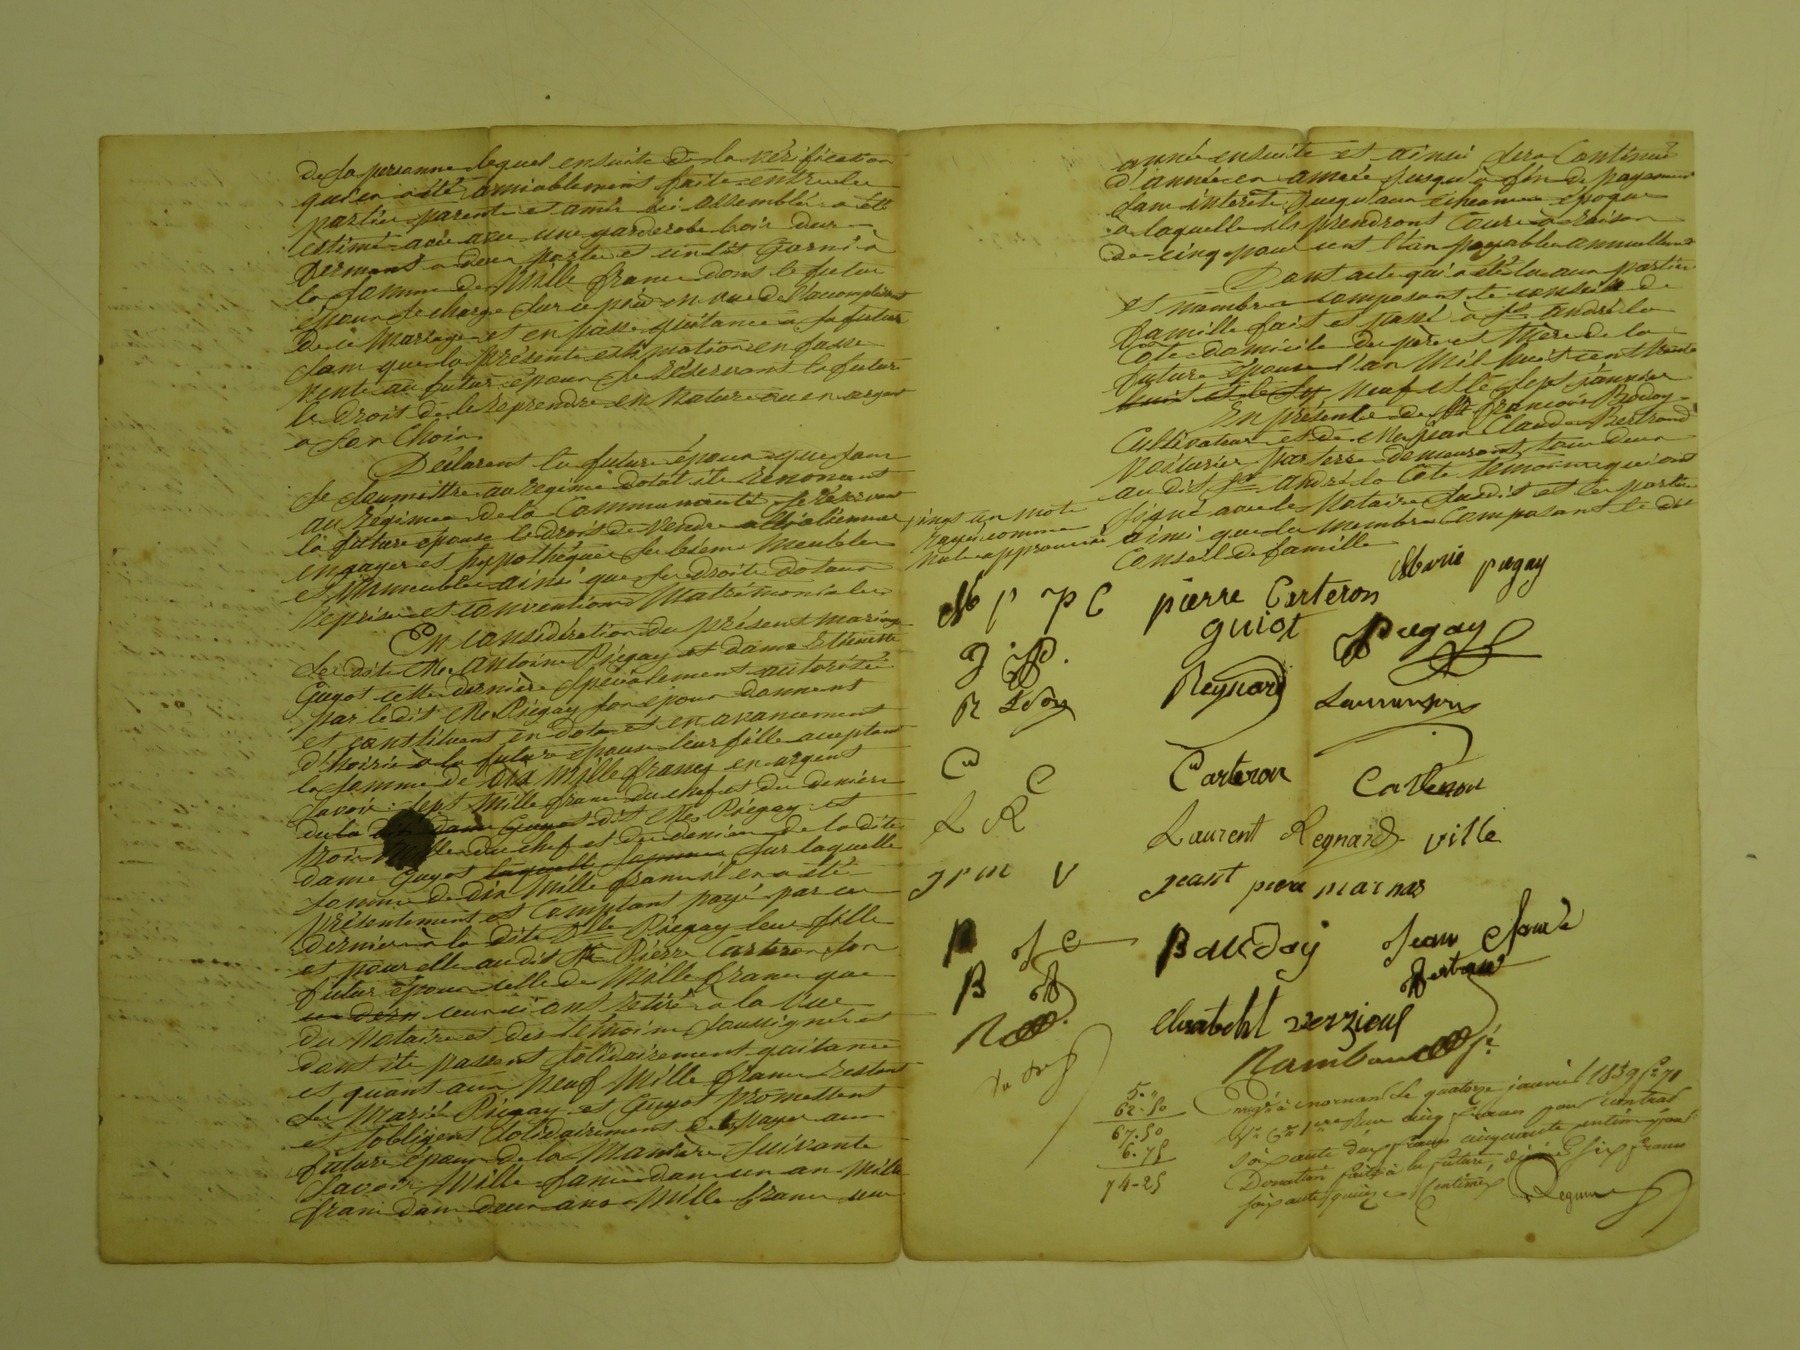 de sa personne lequel ensuite de la vérification
qu'en a été amiablement faite entre les
parties parents et amis ici assemblés a été
estimé avec une garderobe bois dur
fermant a deux portes et un lit garni a
la somme de Mille francs dont le futur
époux se charge sur ce pied en vue de l'accomplissement
de ce mariage et en passe quittance a sa future
sans que la présente estimation en fasse
vente au futur époux se réservant la future
le droit de le reprendre en nature ou en argent
a son choix.
Déclarent les futurs époux que sans
se soumettre au régime dotal ils renoncent
au régime de la Communauté se réservant
la future épouse le droit de vendre aliéner
engager et hypothéquer ses biens meubles
et immeubles ainsi que ses droits dotaux
reprises et conventions Matrimoniales
En considération du présent mariage
les dits Me Antoine Piégay et dame Etiennette
Guyot cette dernière spécialement autorisée
par le dit Me Piégay son époux donnent
et constituent en dot et en avancement
d'hoirie a la future épouse leur fille acceptant
la somme de Dix Mille francs en argent
savoir: sept Mille francs du chef et des deniers
du dit Me Piégay et
trois Mille du chef et des deniers de la dite
dame Guyot laquelle somme sur laquelle
somme de dix Mille francs il en a été
présentement et Comptant payé par ce
dernier a la dite Dlle Piégay leur fille
et pour elle au dit Sr Pierre Carteron son
futur époux celle de Mille francs que
ceux ci ont retiré a la vue
du Notaire et des témoins soussignés et
dont ils passent solidairement quittance
et quant aux Neuf Mille francs restant
les Mariés Piégay et Guyot promettent
et s'obligent solidairement de payer aux
futurs époux de la Manière suivante
savoir Mille francs dans un an Mille
francs dans deux ans Mille francs une
année ensuite et ainsi sera Continué
d'année en année jusqu'a fin de payement
sans intérêts jusqu'aux échéances époque
a laquelle ils prendront cours a raison
de cinq pour cent l'an payable annuellement
Dont acte qui a été lu aux parties
et membres composant le conseil de
famille fait et passé a St andré la
Côte domicile des père et Mère de la
future épouse l'an Mil huit cent trente
neuf et le sept janvier
En présence de Sr françois Bodoy
Cultivateur et de Me jean Claude Bertrand
voiturier par terre demeurant tous deux
au dit St andré la Côte témoins qui ont
signé avec le Notaire susdit et les parties
ainsi que les membres Composant le dit
Conseil de famille
vingt un mots
rayés comme
nuls approuvés
M P P C pierre Carteron Marie piegay
guiot Piegay
Reynard
C Carteron Carteron
L R C Laurent Regnard ville
J P M V jeant piere marnas
B J C Bauday Jean Claude
B Bertrand
Elisabeht verzieux
Rambau
5. "
62-50
67.50
6.75
74-25
Enregé a mornant le quatorze janvier 1839 fo 71
Vo Ce 1ere Reçu cinq francs pour contrat
soixante deux francs cinquante centimes pour
Donation faite à la future, dixième six francs
soixante quinze Centimes